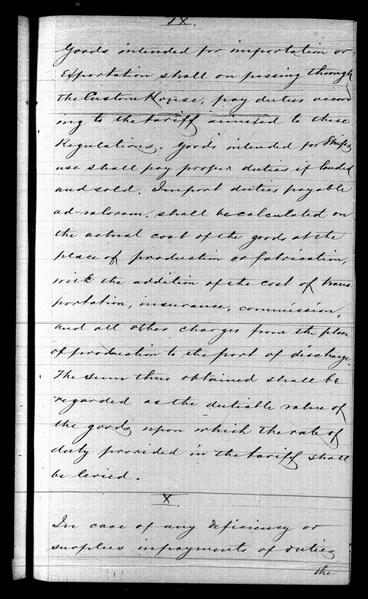 IX.
Goods intended for importation or
Exportation shall on passing through
the Custom House, pay duties accord
ing to the tariff annexed to these
Regulations. Goods intended for Ship's
use shall pay proper duties if landed
and sold. Import duties payable
ad-valorem, shall be calculated on
the actual cost of the goods at the
place of production or fabrication,
with the addition of the cost of trans
portation, insurance, commission,
and all other charges from the place
of production to the port of discharge.
The sum thus obtained shall be
regarded as the dutiable value of
the goods upon which the rate of
duty provided in the tariff shall
be levied.
X.
In case of any deficiency or
surplus in payments of duties
the